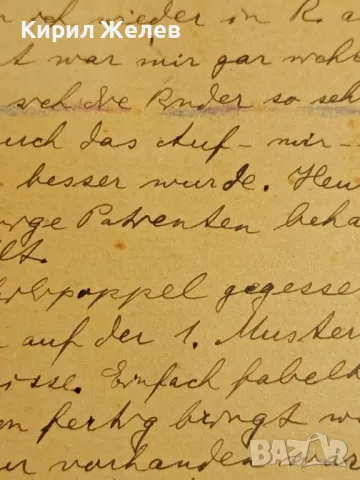 Кирил Желев
ich wieder in R. a
t war mir gar
welche Ruder so seh
uch das Auf-mir-
besser wurde. Heu
ge Patienten beha
lt.
gegesse
auf der 1. Muster
isse. Einfach fabelh
en fertig bringt w
ur vorhanden war
bazar